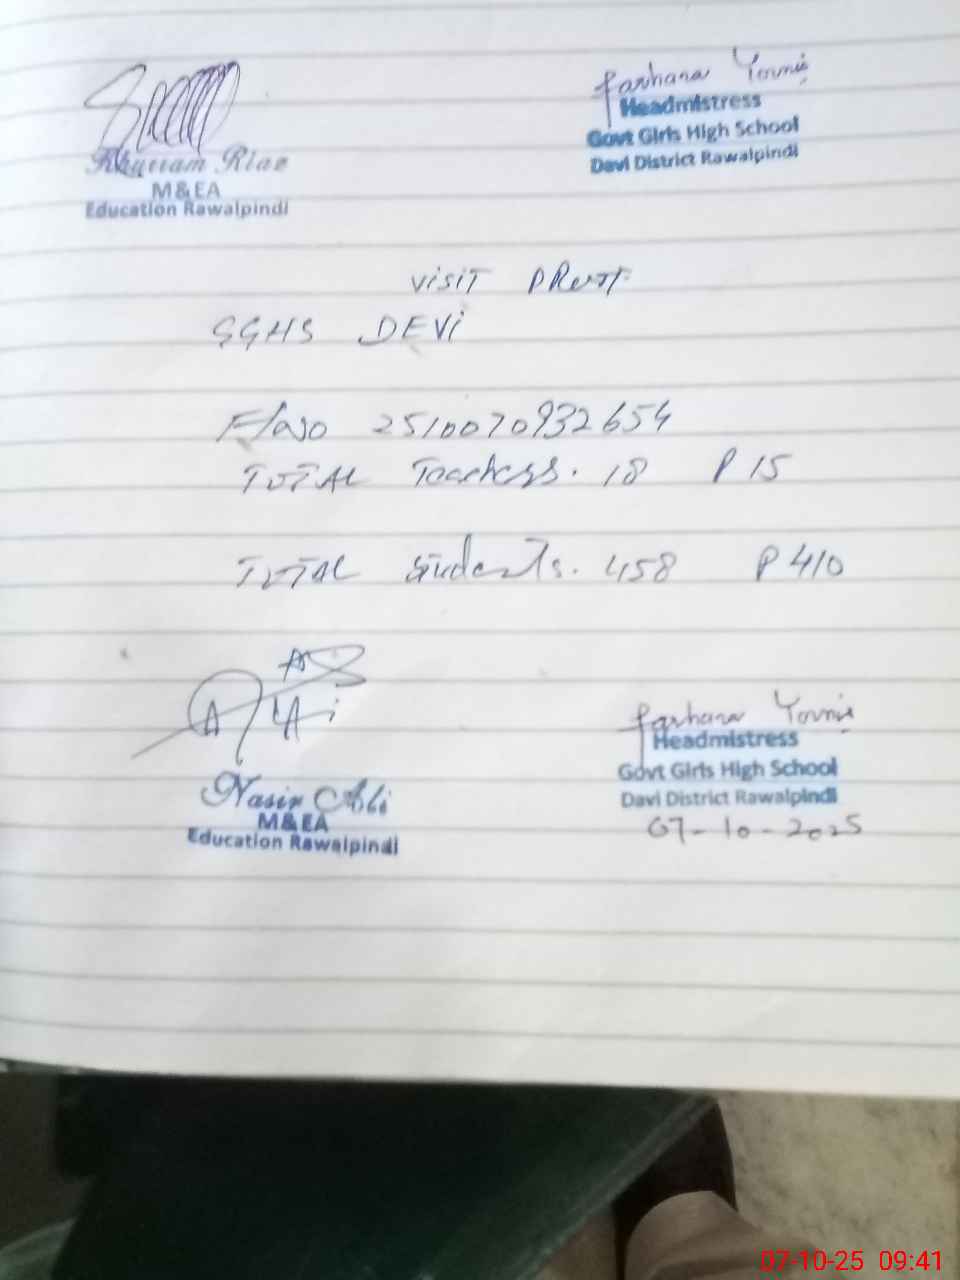 Farhana Younis
Headmistress
Govt Girls High School
Davi District Rawalpindi
Khurram Riaz
M&EA
Education Rawalpindi
VISIT
GGHS DEVi
2510070932654
TOTAL Teachers. 18 P 15
TOTAL Students. 458 P 410
A Ali
Nasir Ali
M&EA
Education Rawalpindi
Farhana Younis
Headmistress
Govt Girls High School
Davi District Rawalpindi
07-10-2025
07-10-25 09:41